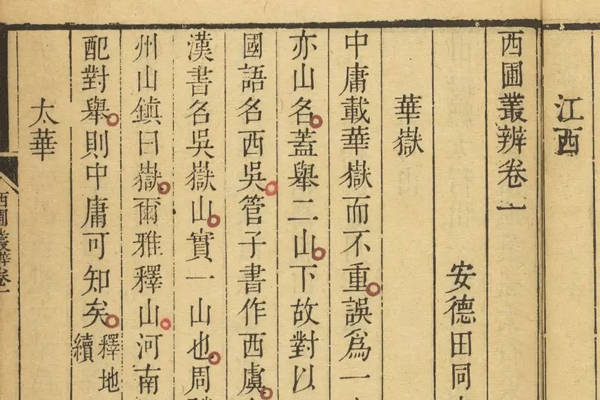 江西
西圃叢辨卷一
安德田同
華嶽
中庸載華嶽而不重誤為一
亦山名蓋舉二山下故對以
國語名西吳管子書作西虞
漢書名吳嶽山實一山也周
州山鎮曰嶽爾雅釋山河南
配對舉則中庸可知矣釋地續
太華
西圃叢辨卷一